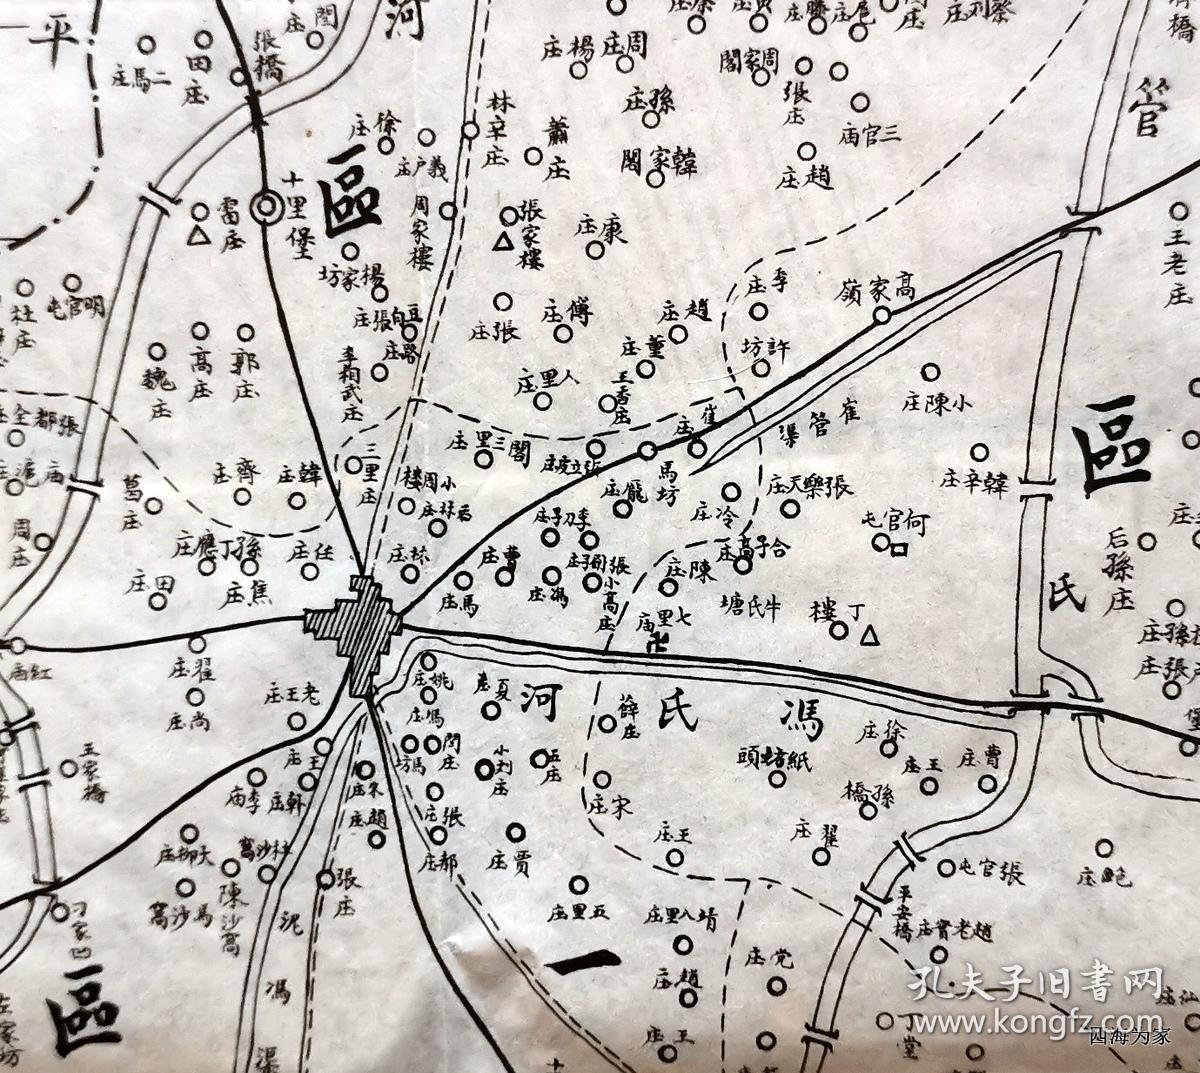 平
二馬庄
田庄
張橋
閻庄
河
楊庄
周庄
周家閣
張庄
三官庙
孫庄
韓家閣
趙庄
管
徐庄
義戸庄
林辛庄
蕭庄
區
雷庄
十里堡
周家樓
張家樓
康庄
楊家坊
王老庄
明官屯
杜庄
魏庄
高庄
郭庄
李相武庄
張庄
傅庄
趙庄
李庄
高家嶺
董庄
許坊
八里庄
王香庄
崔庄
崔管渠
小陳庄
區
三里庄
閻三里庄
馬坊
龐庄
冷庄
張樂天庄
韓辛庄
何官屯
葛庄
齊庄
韓庄
小周樓
周庄
孫丁應庄
焦庄
任庄
林庄
田庄
馬庄
曹庄
李刀子庄
馮庄
小高庄
陳庄
合子高庄
牛氏塘
丁樓
七里庙
后孫庄
氏
紅庙
翟庄
尚庄
老王庄
王庄
姚庄
馮庄
夏庄
河
氏
馮
薛庄
徐庄
王庄
曹庄
紙坊頭
孫橋
王家橋
李庙
韓庄
朱庄
趙庄
馬坊
閆庄
小刘庄
五庄
宋庄
張庄
郝庄
賈庄
王庄
翟庄
張官屯
鮑庄
大柳庄
杜沙窩
馬沙窩
陳沙窩
張庄
五里庄
靖八里庄
平安橋
趙老實庄
刁家凹
泥
馮
渠
一
趙庄
党庄
王庄
區
丁堂
孔夫子旧书网
www.kongfz.com
四海为家